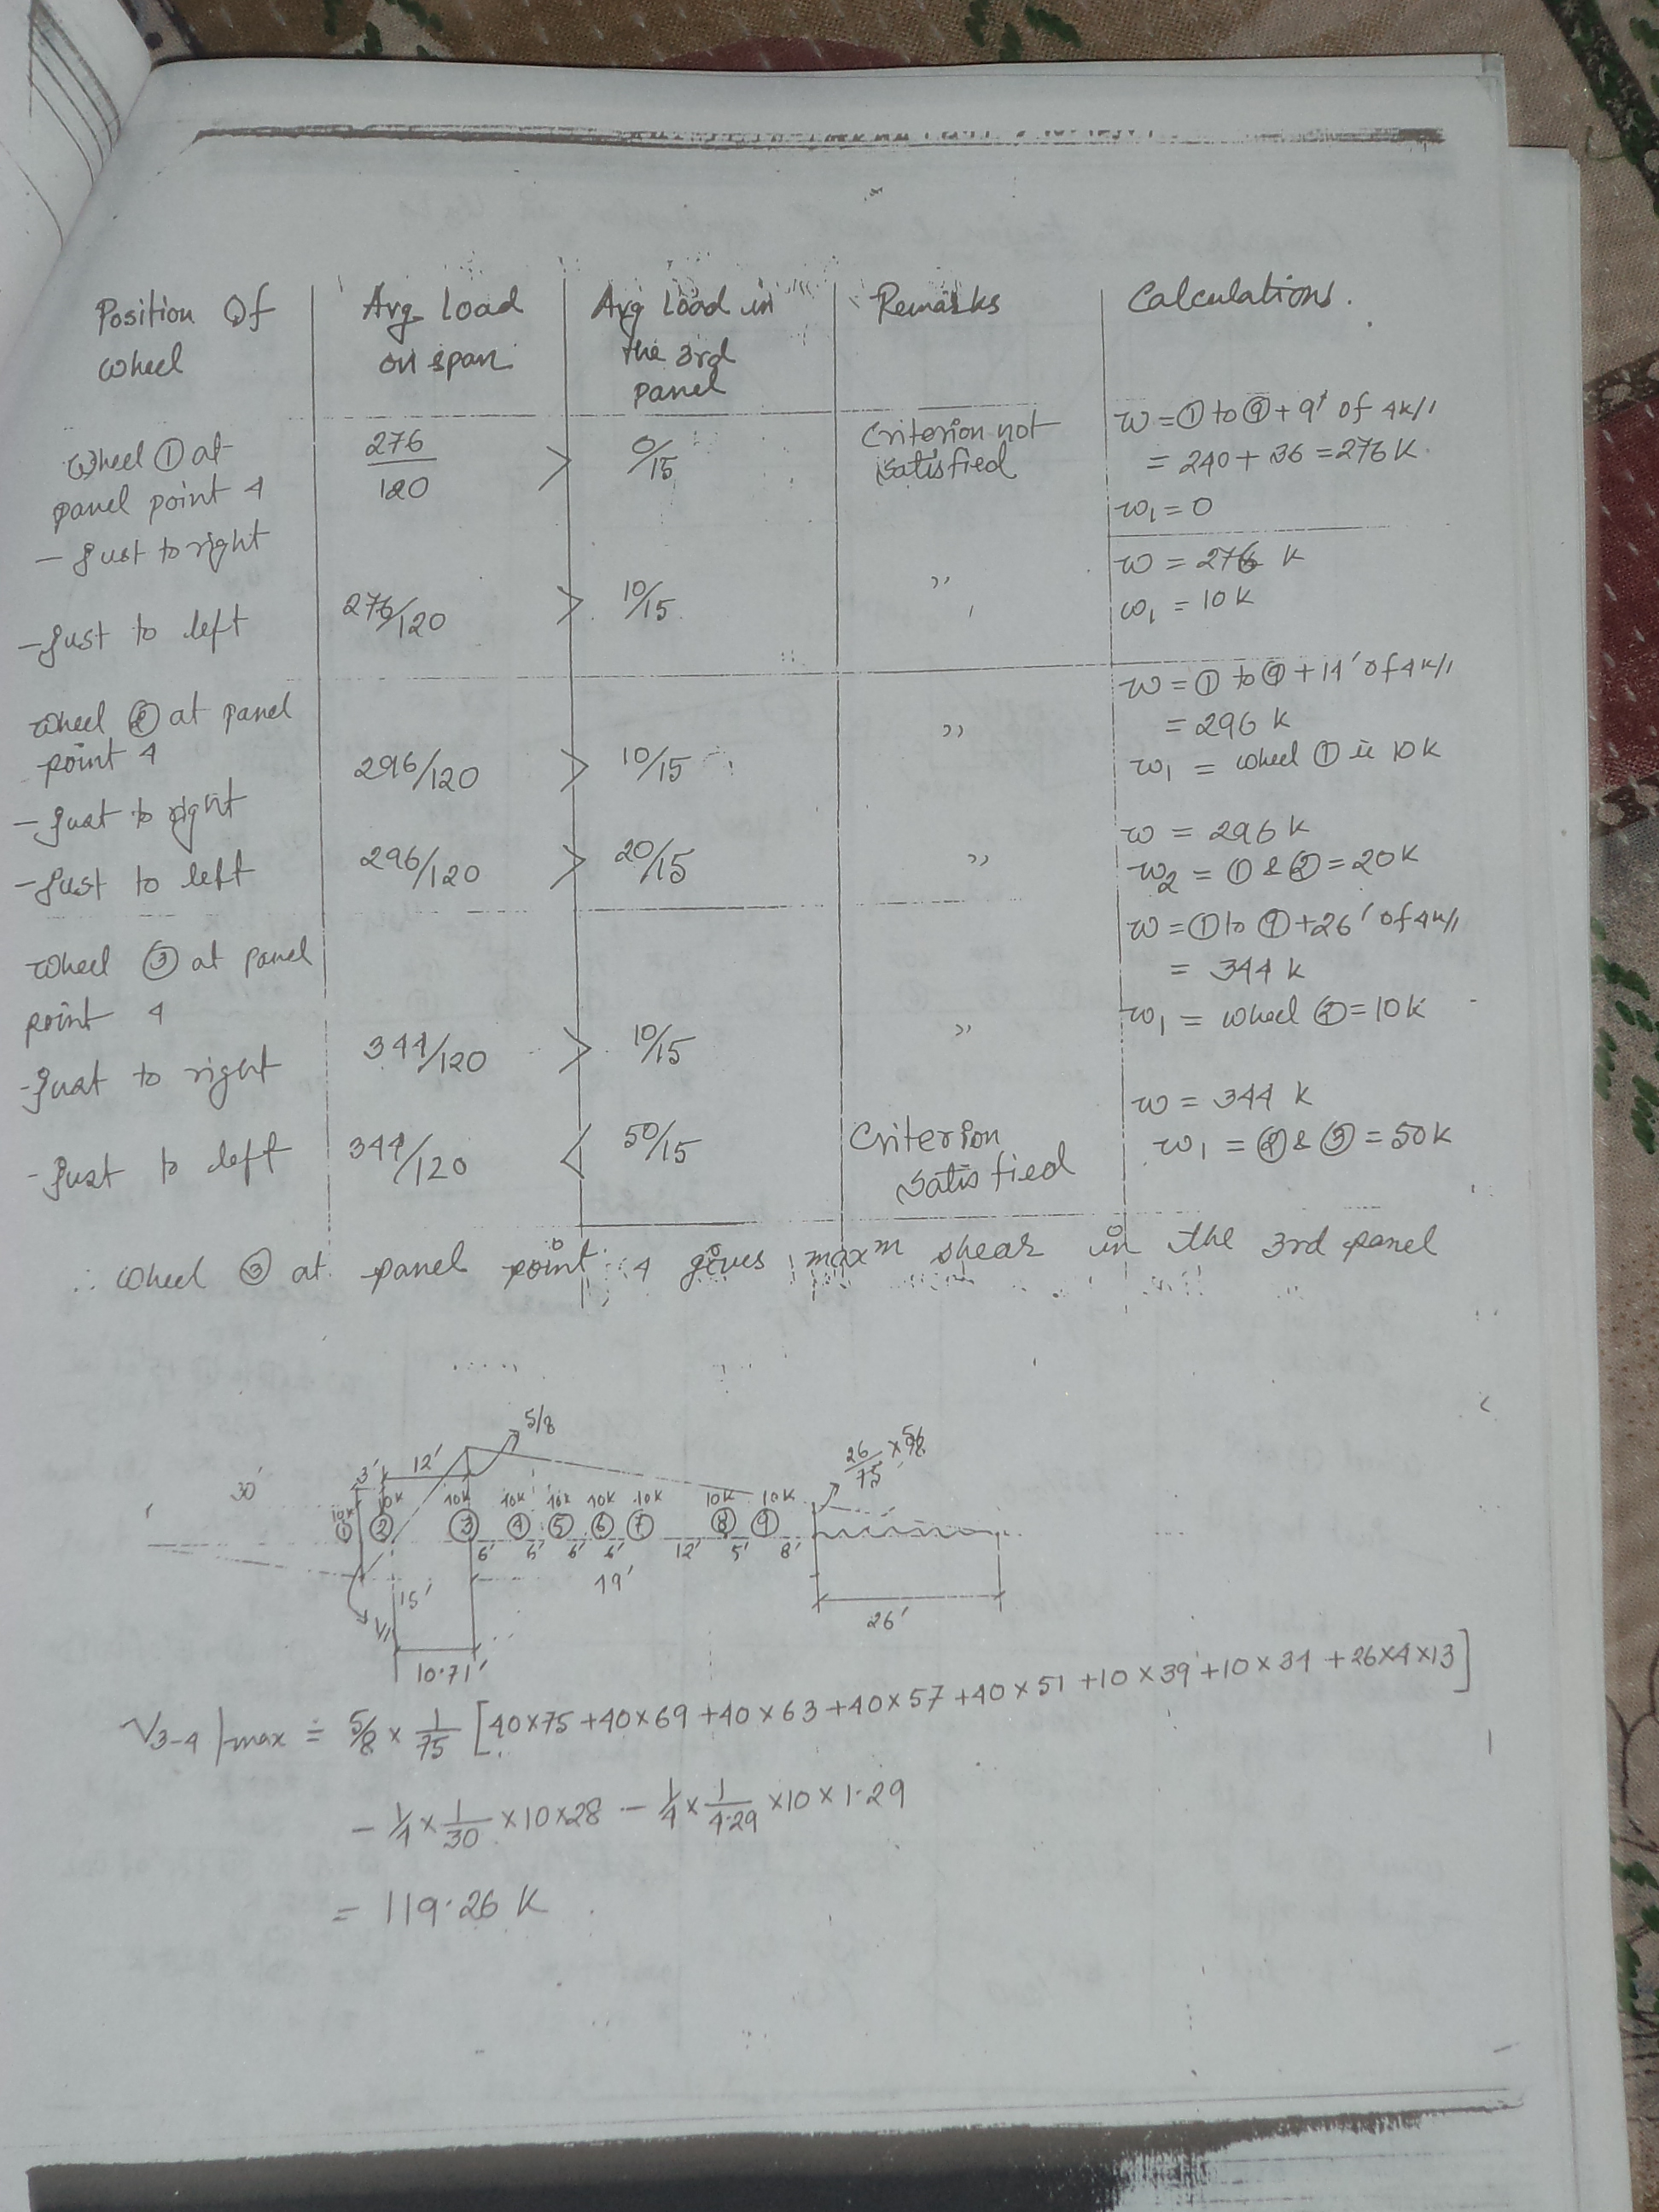 Position Of wheel | Avg. Load on span | Avg Load in the 3rd panel | Remarks | Calculations.
Wheel ① at panel point 4
- Just to right | 276/120 > 0/15 | Criterion not satisfied | W = ① to ⑨ + 9' of 4k/'
= 240 + 36 = 276 K.
W₁ = 0
- Just to left | 276/120 > 10/15 | " | W = 276 K
W₁ = 10 K
Wheel ② at panel point 4
- Just to right | 296/120 > 10/15 | " | W = ① to ⑨ + 14' of 4k/'
= 296 K
W₁ = wheel ① is 10 K
- Just to left | 296/120 > 20/15 | " | W = 296 K
W₂ = ① & ② = 20 K
Wheel ③ at panel point 4
- Just to right | 344/120 > 10/15 | " | W = ① to ⑨ + 26' of 4k/'
= 344 K
W₁ = wheel ② = 10 K
- Just to left | 344/120 < 50/15 | Criterion satisfied | W = 344 K
W₁ = ② & ③ = 50 K
∴ Wheel ③ at panel point 4 gives maxᵐ shear in the 3rd panel
5/8
30' 3' 12'
10K 10K 10K 10K 10K 10K 10K 10K 10K
① ② ③ ④ ⑤ ⑥ ⑦ ⑧ ⑨
6' 5' 6' 6' 12' 5' 8'
15' 79'
26'
10.71'
V₃₋₄|max = 5/8 × 1/75 [40×75 + 40×69 + 40×63 + 40×57 + 40×51 + 10×39 + 10×34 + 26×4×13]
- 1/4 × 1/30 × 10 × 28 - 1/4 × 1/4.29 × 10 × 1.29
= 119.26 K